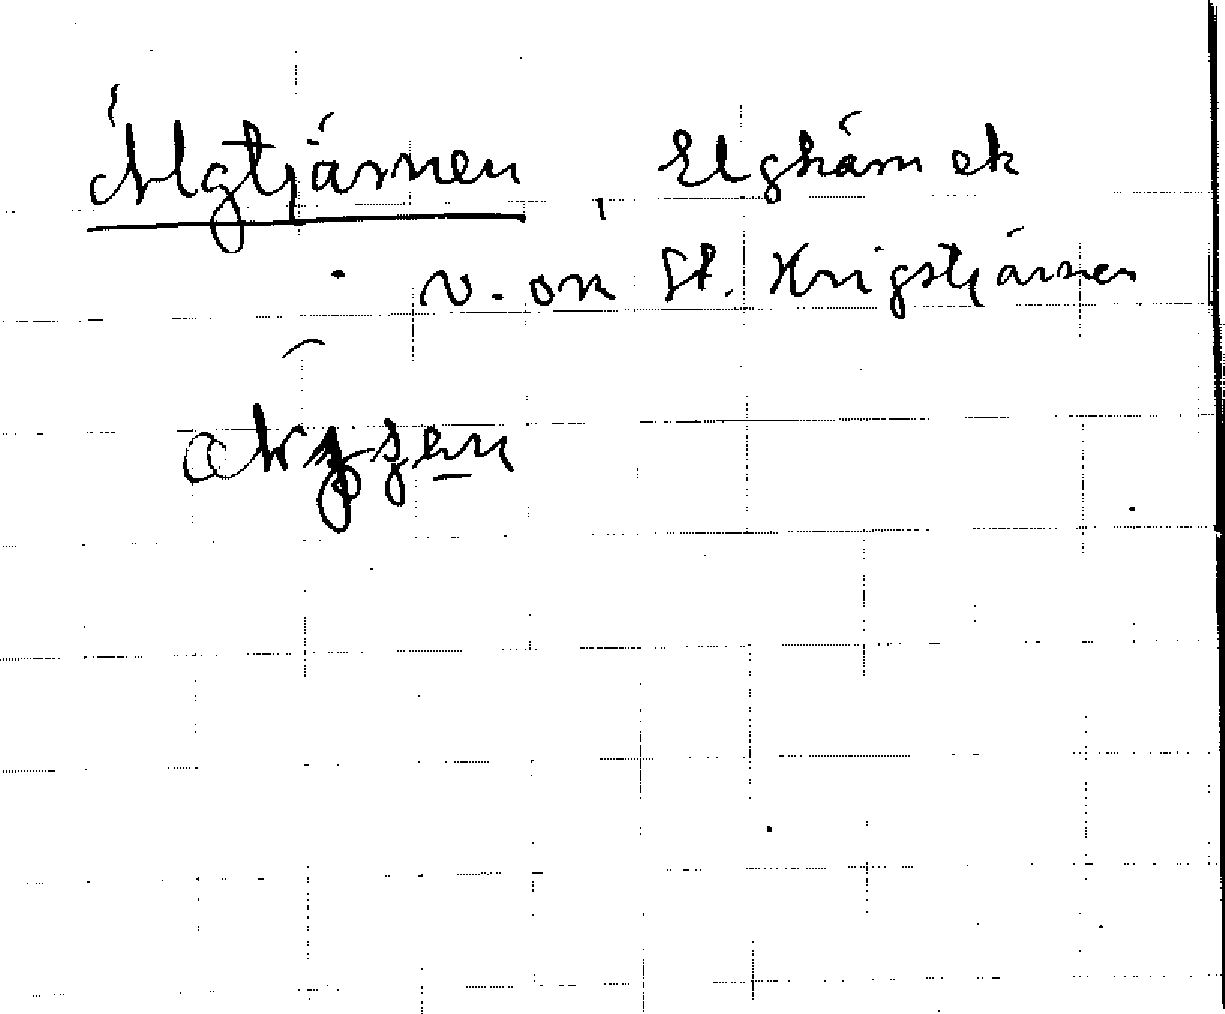 Älgtjärnen, Elghärn ek
v. om St. Krigstjärnen